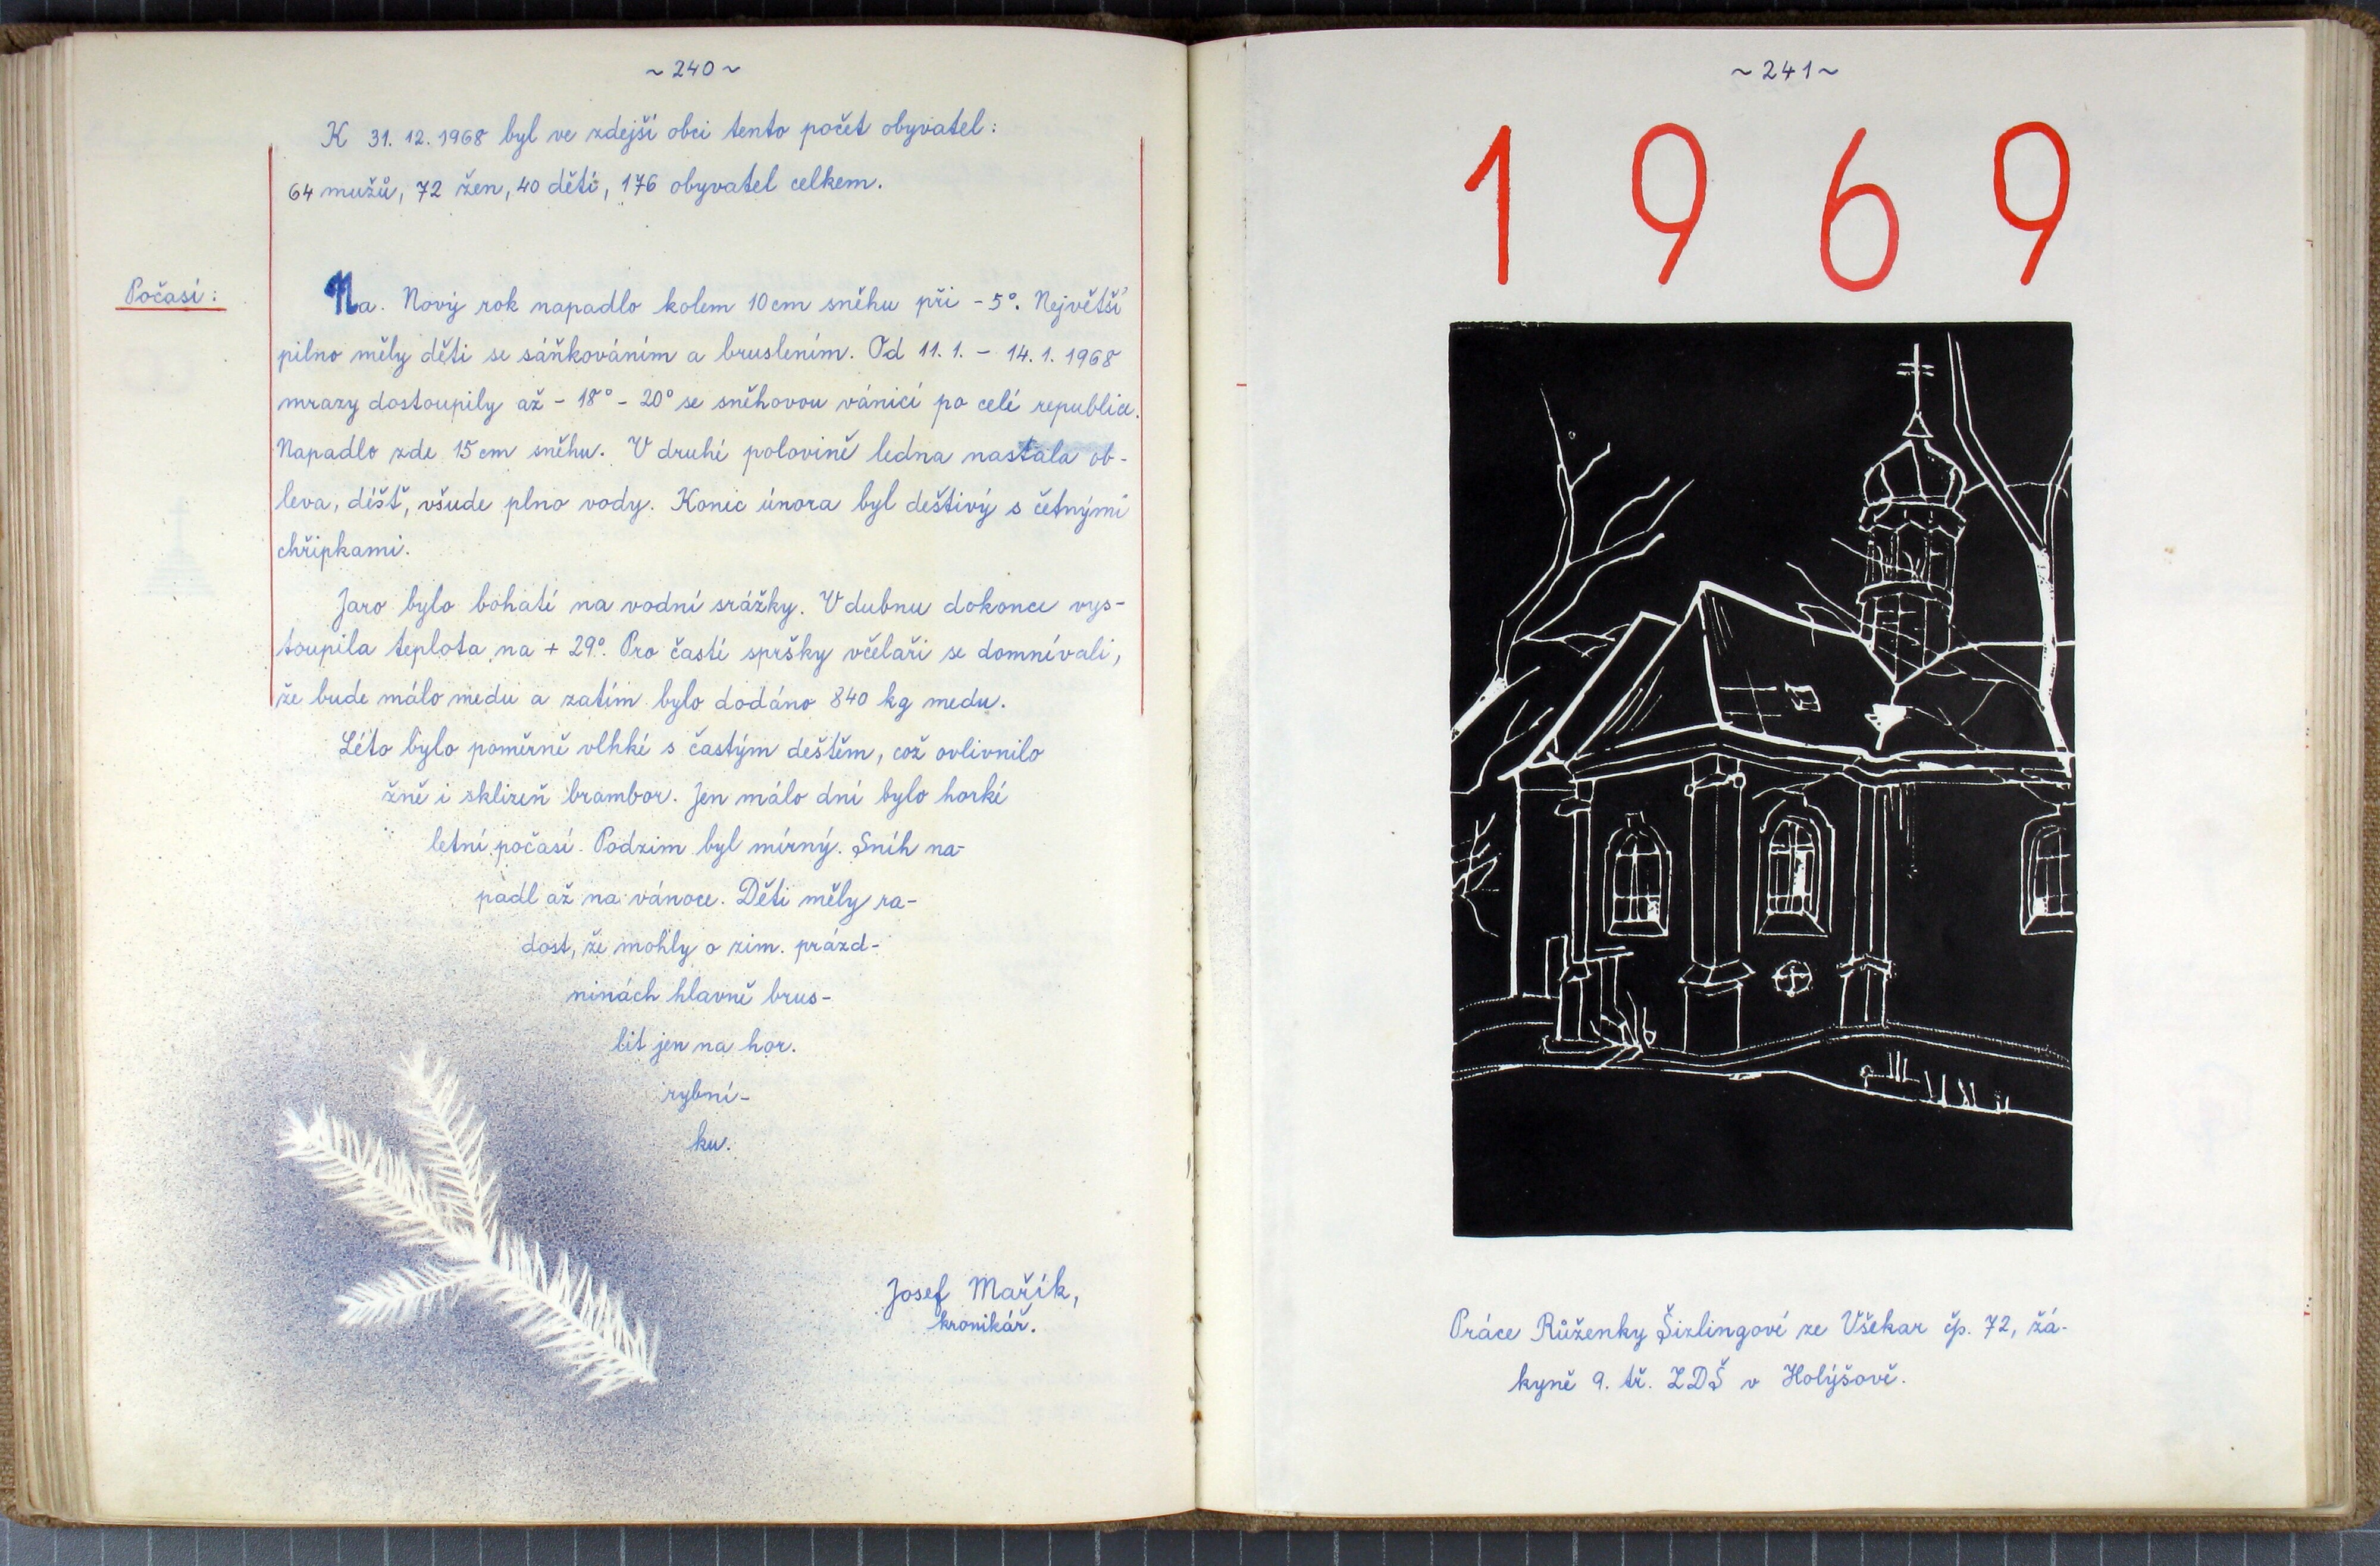 ~ 240 ~
K 31. 12. 1968 byl ve zdejší obci tento počet obyvatel:
64 mužů, 72 žen, 40 dětí, 176 obyvatel celkem.
Počasí:
Na. Nový rok napadlo kolem 10 cm sněhu při - 5°. Největší
pilno měly děti se sáňkováním a bruslením. Od 11. 1. - 14. 1. 1968
mrazy dostoupily až - 18° - 20° se sněhovou vánicí po celé republice.
Napadlo zde 15 cm sněhu. V druhé polovině ledna nastala ob-
leva, déšť, všude plno vody. Konec února byl deštivý s četnými
chřipkami.
Jaro bylo bohaté na vodní srážky. V dubnu dokonce vys-
toupila teplota na + 29°. Pro časté spršky včelaři se domnívali,
že bude málo medu a zatím bylo dodáno 840 kg medu.
Léto bylo poměrně vlhké s častým deštěm, což ovlivnilo
žně i sklizeň brambor. Jen málo dní bylo horké
letní počasí. Podzim byl mírný. Sníh na-
padl až na vánoce. Děti měly ra-
dost, že mohly o zim. prázd-
ninách hlavně brus-
lit jen na hor.
rybní-
ku.
Josef Mařík,
kronikář.
~ 241 ~
1969
Práce Růženky Šizlingové ze Všekar čp. 72, žá-
kyně 9. tř. ZDŠ v Holýšově.